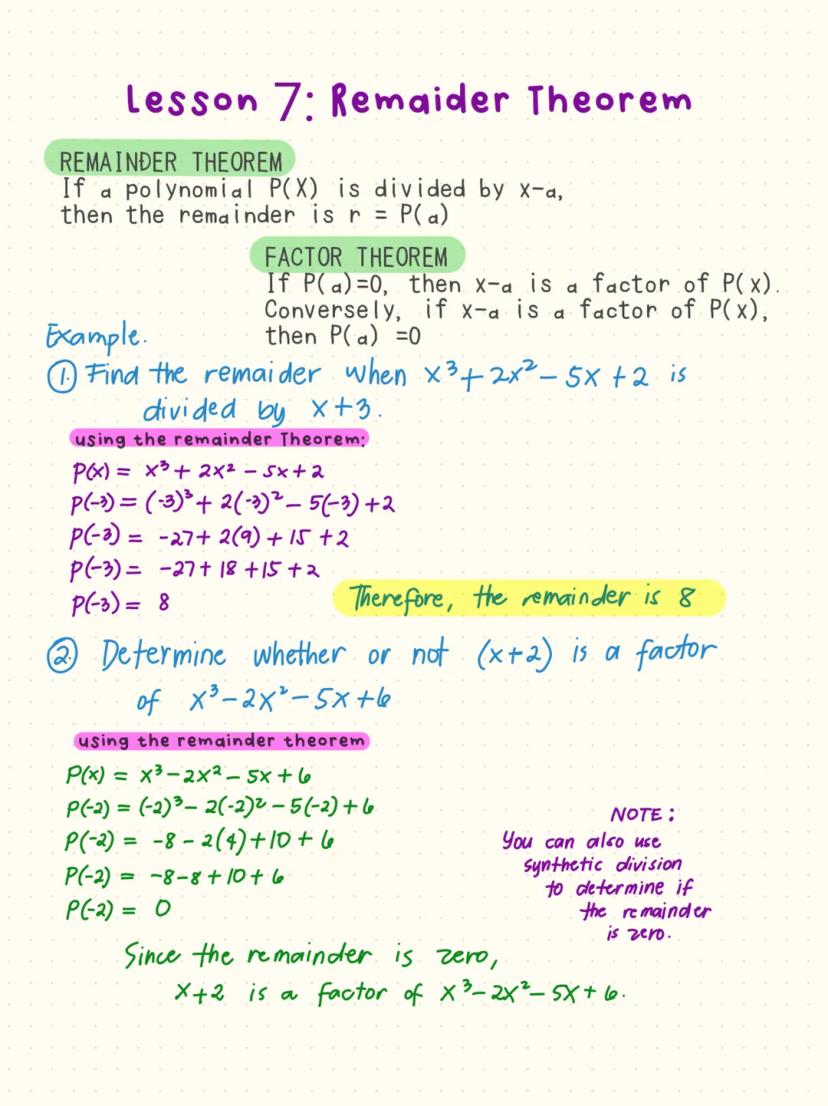 Lesson 7: Remaider Theorem
REMAINDER THEOREM
If a polynomial P(X) is divided by x-a,
then the remainder is r = P(a)
FACTOR THEOREM
If P(a)=0, then x-a is a factor of P(x).
Conversely, if x-a is a factor of P(x),
then P(a) =0
Example.
① Find the remaider when x³+2x²-5x+2 is
divided by x+3.
using the remainder Theorem:
P(x) = x³+ 2x² - 5x+2
P(-3) = (-3)³+ 2(-3)² - 5(-3) +2
P(-3) = -27+ 2(9) + 15 +2
P(-3) = -27+ 18 +15 + 2
P(-3) = 8
Therefore, the remainder is 8
② Determine whether or not (x+2) is a factor
of x³-2x²-5x+6
using the remainder theorem
P(x) = x³-2x² - 5x+6
P(-2) = (-2)³- 2(-2)² - 5(-2)+6
P(-2) = -8 - 2(4)+10 + 6
P(-2) = -8-8+10+6
P(-2) = 0
NOTE:
You can also use
synthetic division
to determine if
the remainder
is zero.
Since the remainder is zero,
x+2 is a factor of x³-2x²-5x+6.